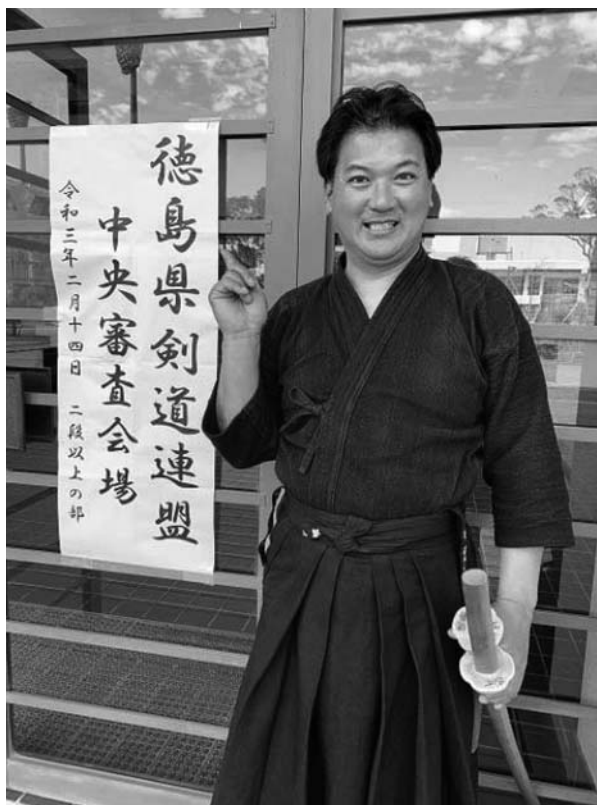 徳島県剣道連盟
中央審査会場
令和三年二月十四日　二段以上の部